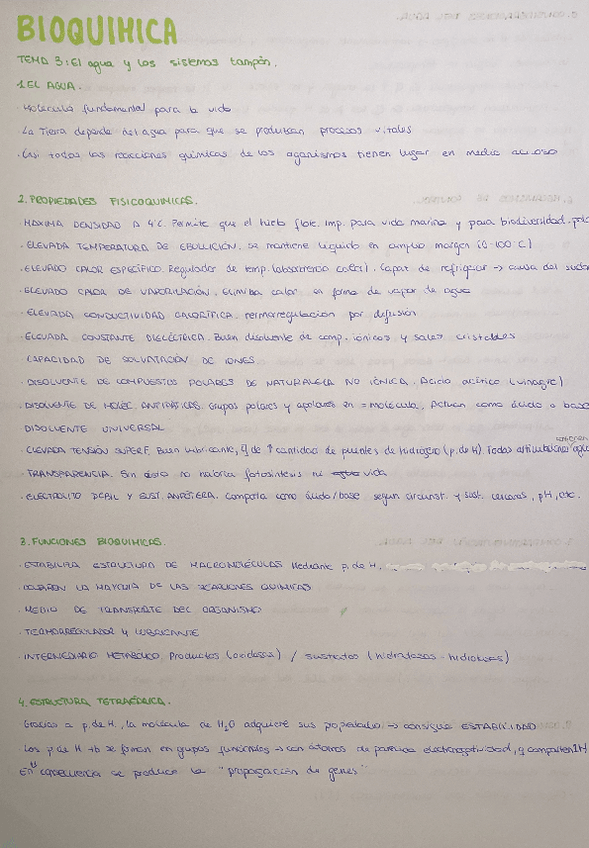 BIOQUIMICA
TEMA 3: El agua y los sistemas tampón.
1. EL AGUA.
· Molécula fundamental para la vida
· La Tierra depende del agua para que se produzcan procesos vitales
· Casi todas las reacciones químicas de los organismos tienen lugar en medio acuoso
2. PROPIEDADES FISICOQUIMICAS.
· MAXIMA DENSIDAD A 4°C. Permite que el hielo flote. Imp. para vida marina y para biodiversidad.
· ELEVADA TEMPERATURA DE EBULLICIÓN. Se mantiene líquido en amplio margen (0-100°C)
· ELEVADO CALOR ESPECÍFICO. Regulador de temp. (absorbiendo calor). Capaz de refrigerar → causa del sudor
· ELEVADO CALOR DE VAPORIZACIÓN. Elimina calor en forma de vapor de agua
· ELEVADA CONDUCTIVIDAD CALORÍFICA. Termorregulación por difusión
· ELEVADA CONSTANTE DIELÉCTRICA. Buen disolvente de comp. iónicos y sales cristales
CAPACIDAD DE SOLVATACIÓN DE IONES
· DISOLVENTE DE COMPUESTOS POLARES DE NATURALEZA NO IÓNICA. Ácido acético (vinagre)
· DISOLVENTE DE MOLÉC. ANFIPÁTICAS. Grupos polares y apolares en = molécula. Actúan como ácido o base
DISOLVENTE UNIVERSAL
· ELEVADA TENSIÓN SUPERF. Buen lubricante, ↑ cantidad de puentes de hidrógeno (p. de H). Todas articulaciones agua
· TRANSPARENCIA. Sin esto no habría fotosíntesis ni vida
· ELECTROLITO DEBIL Y SUST. ANFÓTERA. Comporta como ácido/base según circunst. y sust. cercanas, pH, etc.
3. FUNCIONES BIOQUIMICAS.
· ESTABILIZA ESTRUCTURA DE MACROMOLÉCULAS Mediante p. de H.
· OCURREN LA MAYORIA DE LAS REACCIONES QUIMICAS
· MEDIO DE TRANSPORTE DEL ORGANISMO
· TERMORREGULADOR Y LUBRICANTE
· INTERMEDIARIO METABOLICO Productos (oxidasas) / sustratos (hidratasas - hidrolasas)
4. ESTRUCTURA TETRAÉDRICA.
Gracias a p. de H, la molécula de H₂O adquiere sus propiedades → consigue ESTABILIDAD
Los p de H tb se forman en grupos funcionales → con átomos de parecida electronegatividad, y comparten 1 H
En consecuencia se produce la "propagación de genes"